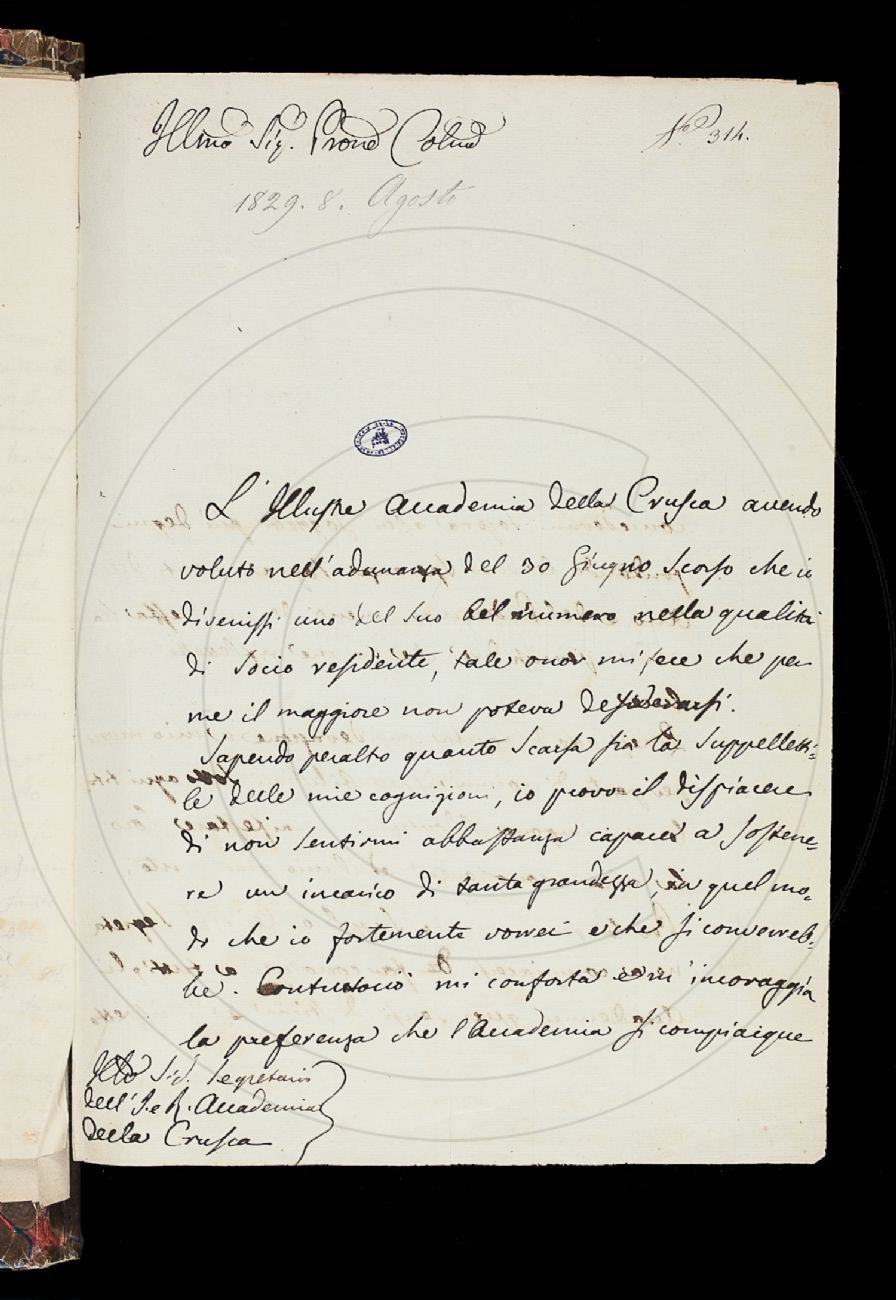 Illmo Sig. Prone Colmo
N.o 314.
1829. 8. Agosto
L'Illustre Accademia della Crusca avendo
voluto nell'adunanza del 30 Giugno scorso che io
divenissi uno del suo bel numero nella qualità
di socio residente, tale onor mi fece che per
me il maggiore non poteva desiderarsi.
Sapendo peraltro quanto scarsa sia la suppelletti-
le delle mie cognizioni, io provo il dispiacere
di non sentirmi abbastanza capace a sostene-
re un incarico di tanta grandezza, in quel mo-
do che io fortemente vorrei e che si converreb-
be. Contuttociò mi conforta e m'incoraggia
la preferenza che l'Accademia si compiacque
Sig. Segretario
dell'I. e R. Accademia
della Crusca